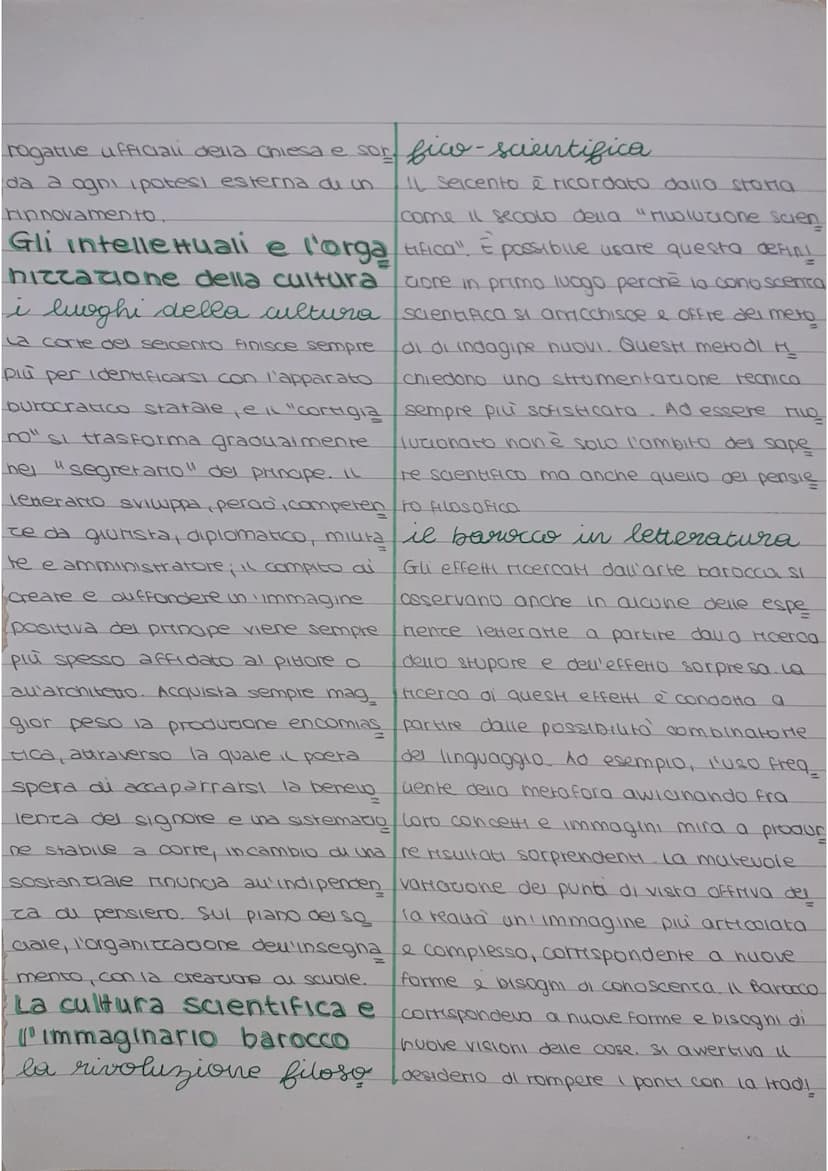 rogative ufficiali della chiesa e sor=
da a ogni ipotesi esterna di un
rinnovamento.
Gli intellettuali e l'orga=
nizzazione della cultura
i luoghi della cultura
La corte del seicento finisce sempre
più per identificarsi con l'apparato
burocratico statale, e il "cortigia=
no" si trasforma gradualmente
nel "segretario" del principe. Il
letterato sviluppa, perciò, competen=
ze da giurista, diplomatico, milita=
re e amministratore; il compito di
creare e diffondere un'immagine
positiva del principe viene sempre
più spesso affidato al pittore o
all'architetto. Acquista sempre mag=
gior peso la produzione encomias=
tica, attraverso la quale il poeta
spera di accaparrarsi la benevo=
lenza del signore e una sistemazio=
ne stabile a corte, in cambio di una
sostanziale rinuncia all'indipenden=
za di pensiero. Sul piano del so=
ciale, l'organizzazione dell'insegna=
mento, con la creazione di scuole.
La cultura scientifica e
l'immaginario barocco
la rivoluzione filoso=
fico-scientifica
Il seicento è ricordato dalla storia
come il secolo della "rivoluzione scien=
tifica". È possibile usare questa defini=
zione in primo luogo perchè la conoscenza
scientifica si arricchisce e offre dei meto=
di di indagine nuovi. Questi metodi ri=
chiedono una strumentazione tecnica
sempre più sofisticata. Ad essere rivo=
luzionato non è solo l'ambito del sape=
re scientifico ma anche quello del pensie=
ro filosofico
il barocco in letteratura
Gli effetti ricercati dall'arte barocca si
osservano anche in alcune delle espe=
rienze letterarie a partire dalla ricerca
dello stupore e dell'effetto sorpresa. La
ricerca di questi effetti è condotta a
partire dalle possibilità combinatorie
del linguaggio. Ad esempio, l'uso freq=
uente della metafora avvicinando fra
loro concetti e immagini mira a produr=
re risultati sorprendenti. La mutevole
variazione dei punti di vista offriva del=
la realtà un'immagine più articolata
e complessa, corrispondente a nuove
forme e bisogni di conoscenza. Il Barocco
corrispondeva a nuove forme e bisogni di
nuove visioni delle cose. Si avvertiva il
desiderio di rompere i ponti con la tradi=